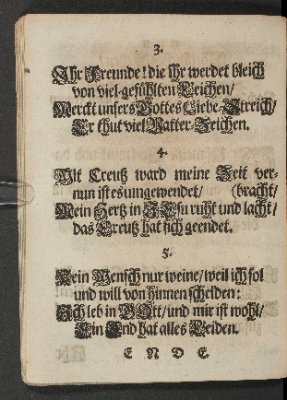 3.
Ihr Freunde! die Ihr werdet bleich
von viel-gefühlten Leichen/
Merckt unsers Gottes Liebe-Streich/
Er thut viel Vatter-Zeichen.
4.
Mit Creutz ward meine Zeit ver-
nun ist es umgewendet/ (bracht/
Mein Hertz in JEsu ruht und lacht/
das Creutz hat sich geendet.
5.
Kein Mensch nur weine/ weil ich sol
und will von hinnen scheiden:
Ich leb in GOtt/ und mir ist wohl/
Ein End hat alles Leiden.
E N D E.